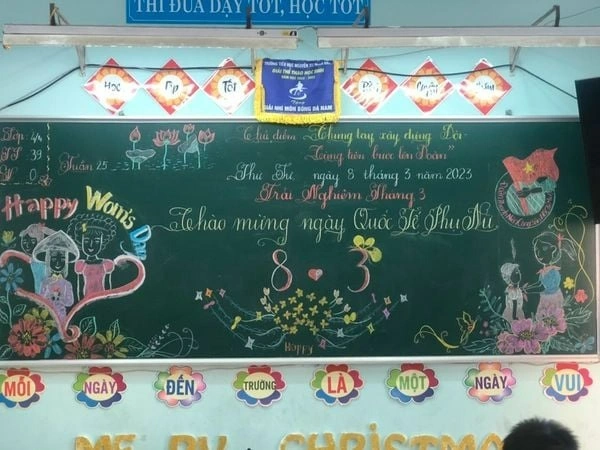 THI ĐUA DẠY TỐT, HỌC TỐT
Học Tập Tốt
GIẢI THỂ THAO HỌC SINH
Tặng
GIẢI NHÌ MÔN BÓNG ĐÁ NAM
Lớp: 4/4
SS: 39
V: 0
Tuần 25
Chủ điểm: "Chung tay xây dựng Đội-
Cùng tiến bước lên Đoàn"
Thứ Tư, ngày 8 tháng 3 năm 2023
Trải Nghiệm Tháng 3
Chào mừng ngày Quốc Tế Phụ Nữ
8 3
Happy Wom's Day
Happy
MỖI NGÀY ĐẾN TRƯỜNG LÀ MỘT NGÀY VUI
CHRISTMA